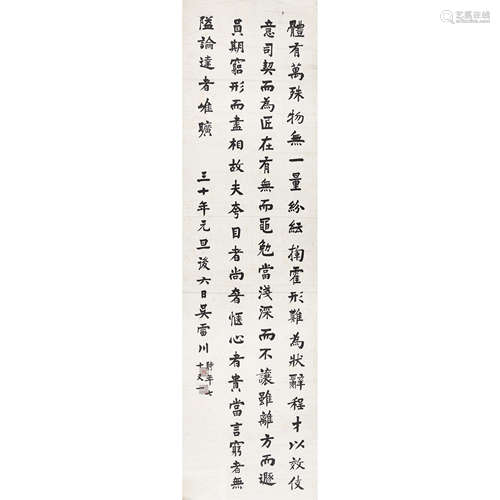 體有萬殊物無一量紛紜揮霍形難為狀辭程才以效伎
意司契而為匠在有無而黽勉當淺深而不讓雖離方而遯
員期窮形而盡相故夫夸目者尚奢愜心者貴當言窮者無
隘論達者唯曠
三十年元旦後六日吳雷川
時年七
十又一